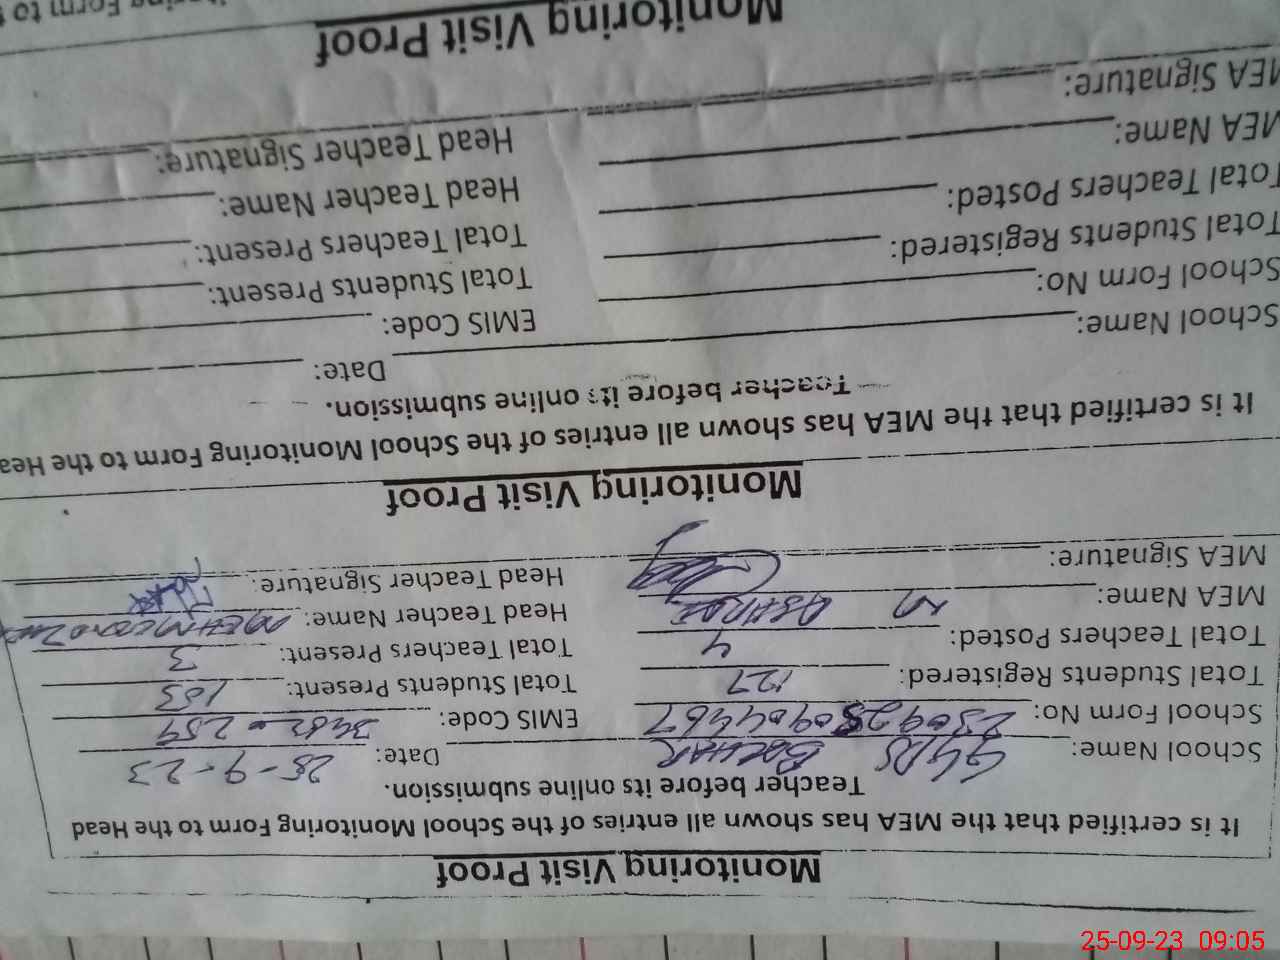 Monitoring Visit Proof
It is certified that the MEA has shown all entries of the School Monitoring Form to the Head
Teacher before its online submission.
School Name: GGPS Date: 25-9-23
School Form No: EMIS Code:
Total Students Registered: 127 Total Students Present: 103
Total Teachers Posted: 4 Total Teachers Present: 3
MEA Name: M ASHRAF Head Teacher Name:
MEA Signature: Head Teacher Signature:
Monitoring Visit Proof
It is certified that the MEA has shown all entries of the School Monitoring Form to the Hea
Teacher before its online submission.
School Name: Date:
School Form No: EMIS Code:
Total Students Registered: Total Students Present:
Total Teachers Posted: Total Teachers Present:
MEA Name: Head Teacher Name:
MEA Signature: Head Teacher Signature:
Monitoring Visit Proof
Form to
25-09-23 09:05